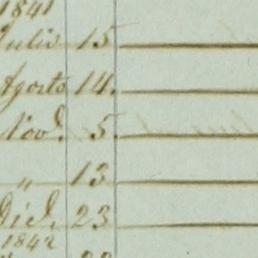 1841
Julio 15
Agosto 14.
Nov.e 5.
" 13
Dic.e 23
1842